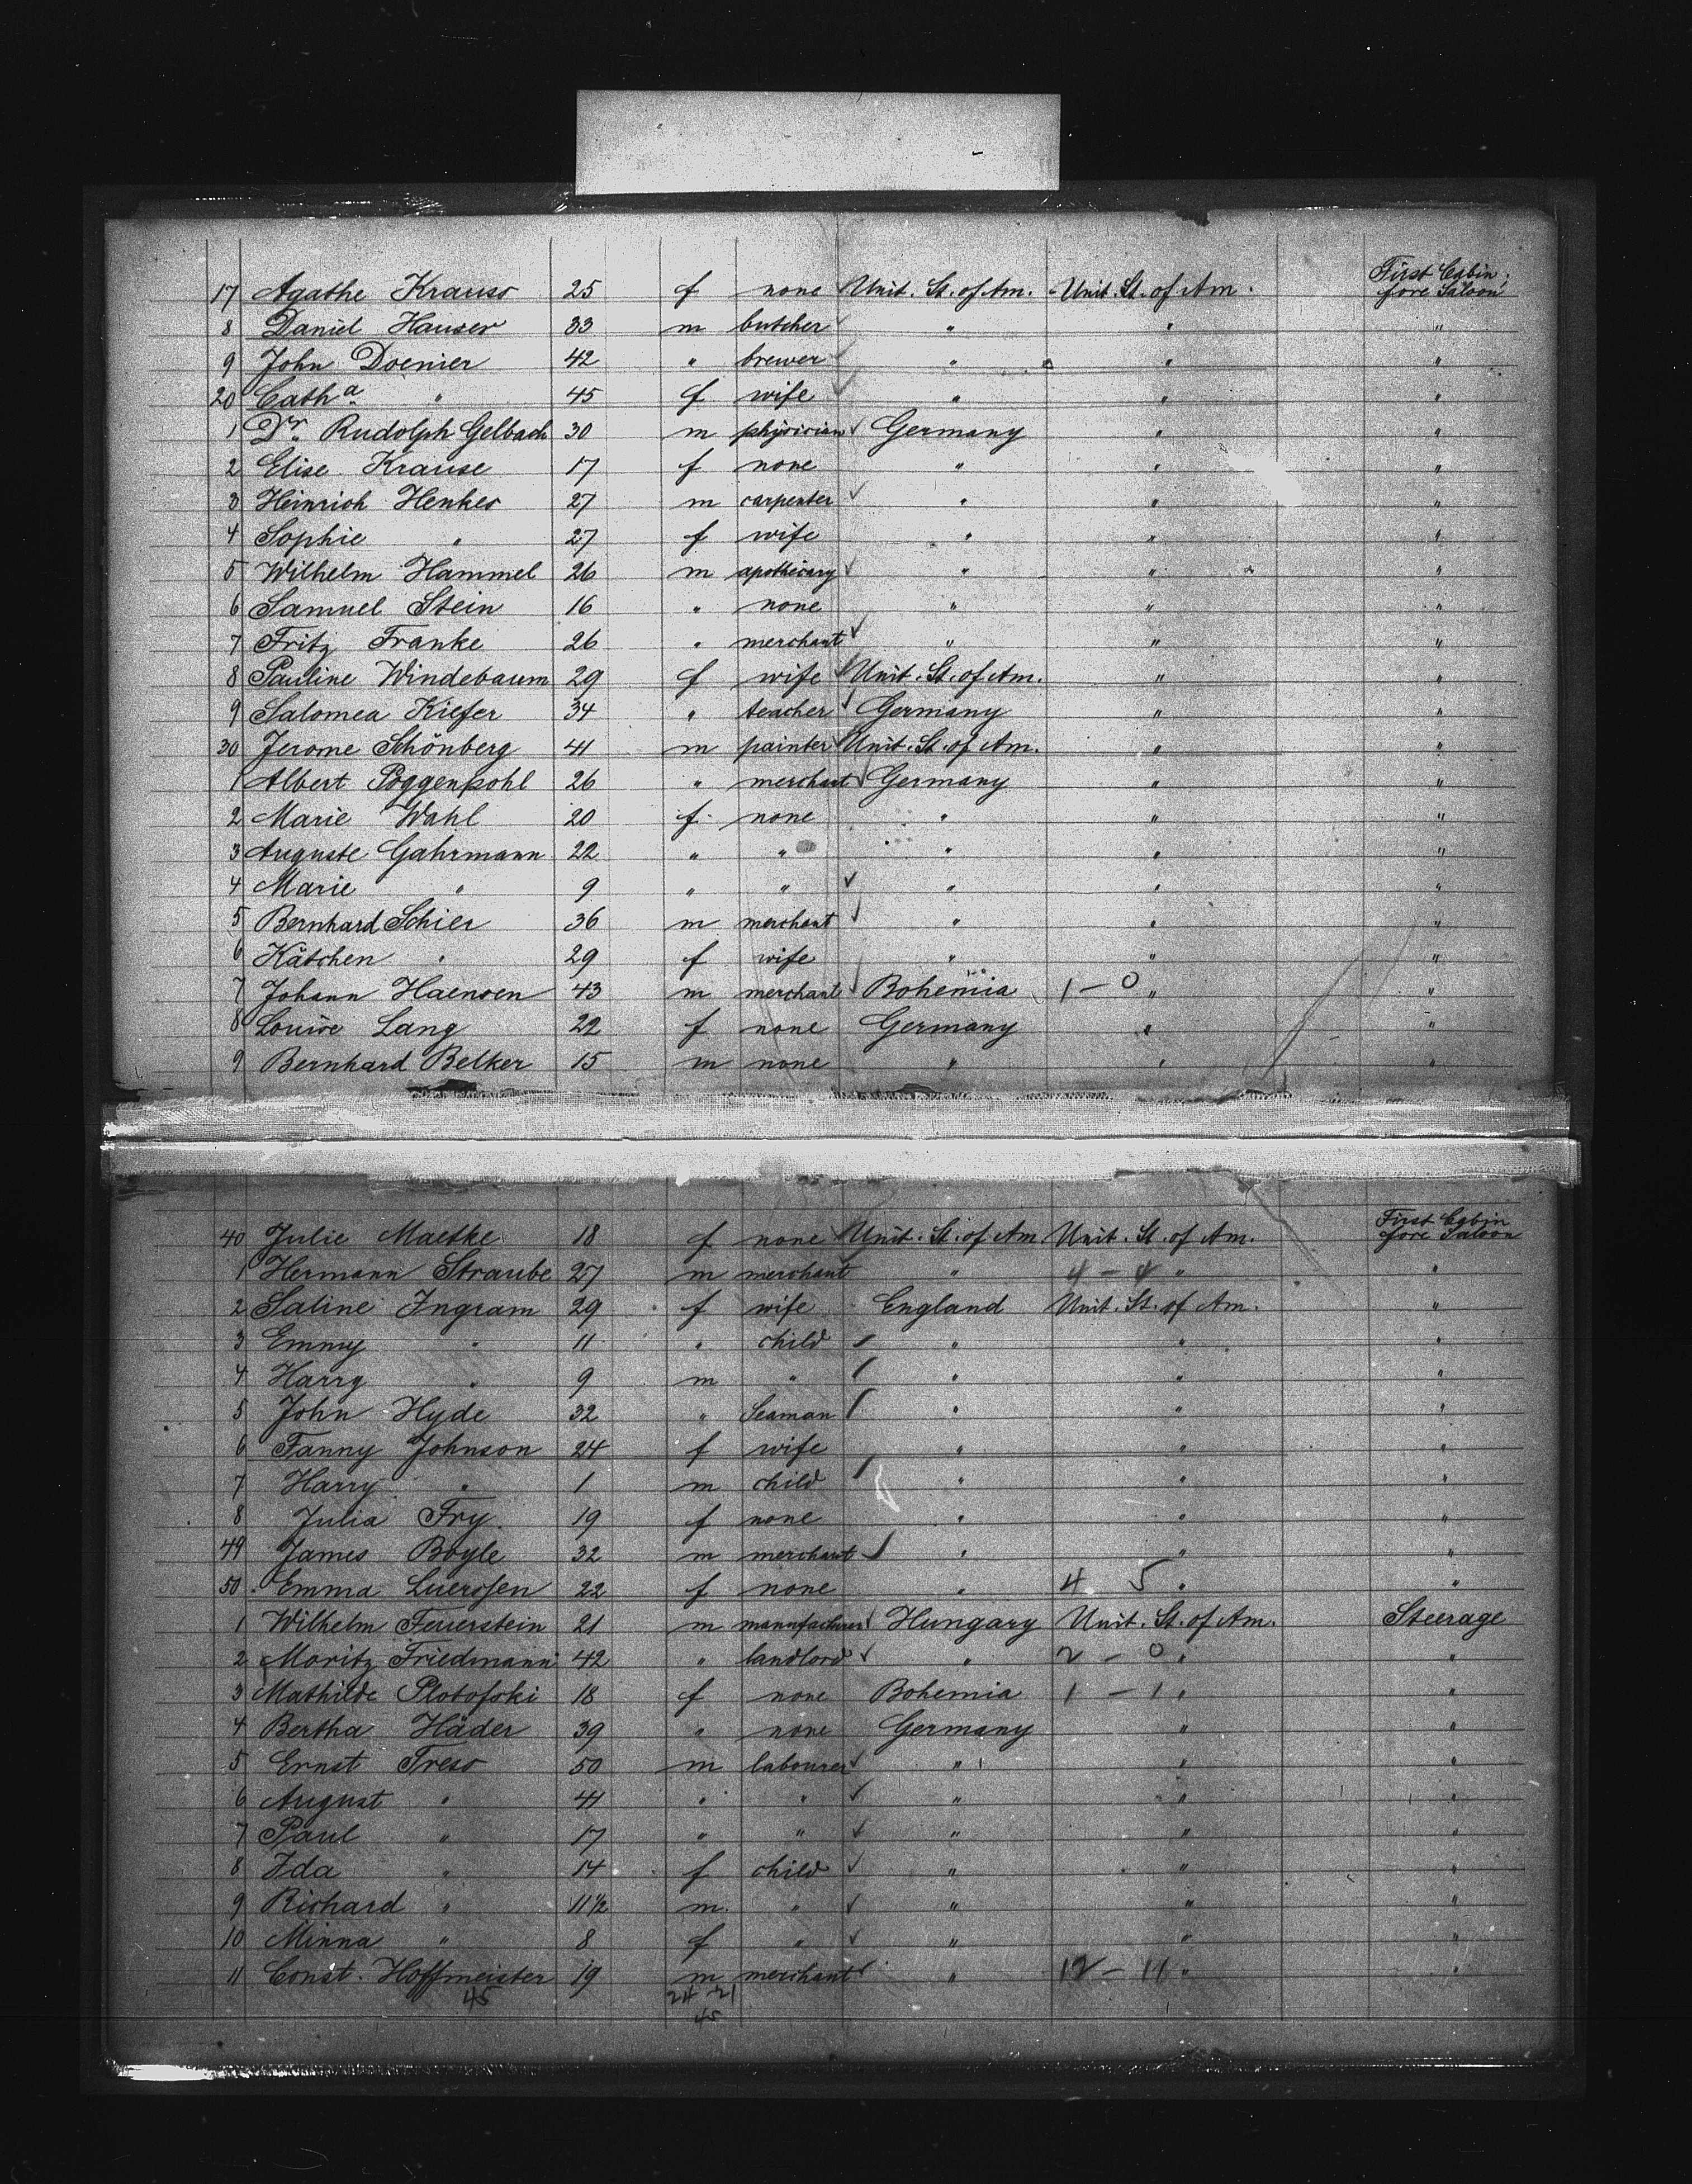 17 Agathe Krauss 25 f none Unit. St. of Am. Unit. St. of Am. First Cabin fore Saloon
8 Daniel Hauser 33 m butcher " " "
9 John Doenier 42 " brewer " " "
20 Catha " 45 f wife " " "
1 Dr. Rudolph Gelbach 30 m physician Germany " "
2 Elise Krause 17 f none " " "
3 Heinrich Henkes 27 m carpenter " " "
4 Sophie " 27 f wife " " "
5 Wilhelm Hammel 26 m apothecary " " "
6 Samuel Stein 16 " none " " "
7 Fritz Franke 26 " merchant " " "
8 Pauline Windebaum 29 f wife Unit. St. of Am. " "
9 Salomea Kiefer 34 " teacher Germany " "
30 Jerome Schönberg 41 m painter Unit. St. of Am. " "
1 Albert Poggenpohl 26 " merchant Germany " "
2 Marie Wahl 20 f. none " " "
3 Auguste Gahrmann 22 " " " " "
4 Marie " 9 " " " " "
5 Bernhard Schier 36 m merchant " " "
6 Kätchen " 29 f wife " " "
7 Johann Haensen 43 m merchant Bohemia 1 - 0 " "
8 Louise Lang 22 f none Germany " "
9 Bernhard Belker 15 m none " " "
40 Julie Maetke 18 f none Unit. St. of Am. Unit. St. of Am. First Cabin fore Saloon
1 Hermann Straube 27 m merchant " 4 - 4 " "
2 Saline Ingram 29 f wife England Unit. St. of Am. "
3 Emmy " 11 " child " " "
4 Harry " 9 m " " " "
5 John Hyde 32 " Seaman " " "
6 Fanny Johnson 24 f wife " " "
7 Harry " 1 m child " " "
8 Julia Fry 19 f none " " "
49 James Boyle 32 m merchant " " "
50 Emma Luerssen 22 f none " 4 5 " "
1 Wilhelm Feuerstein 21 m manufacturer Hungary Unit. St. of Am. Steerage
2 Moritz Friedmann 42 " landlord " 2 - 0 " "
3 Mathilde Plotofski 18 f none Bohemia 1 - 1 " "
4 Bertha Häder 39 " none Germany " "
5 Ernst Tress 50 m labourer " " "
6 August " 41 " " " " "
7 Paul " 17 " " " " "
8 Ida " 14 f child " " "
9 Richard " 11½ m. " " " "
10 Minna " 8 f " " " "
11 Const. Hoffmeister 19 m merchant " 12 - 11 " "
45 24 - 21
45